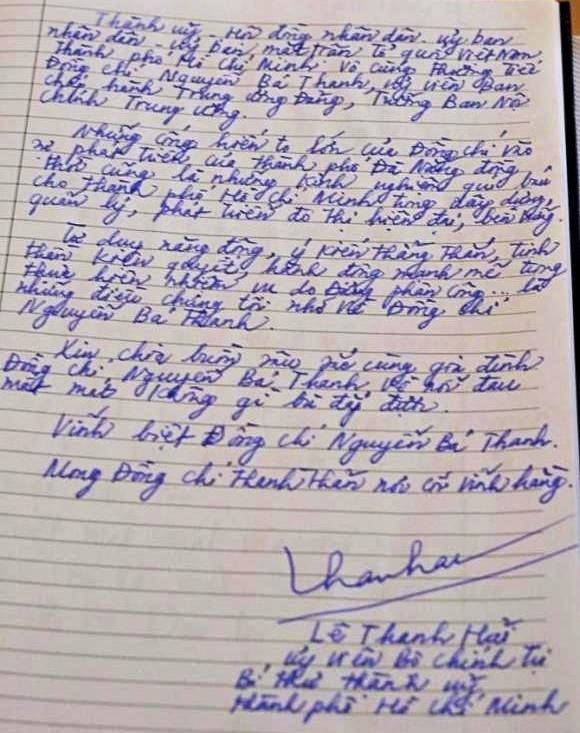 Thành uỷ - Hội đồng nhân dân - uỷ ban
nhân dân - Uỷ ban mặt trận Tổ quốc Việt Nam
thành phố Hồ Chí Minh. Vô cùng thương tiếc
Đồng chí Nguyễn Bá Thanh, uỷ viên Ban
chấp hành Trung ương Đảng, Trưởng Ban Nội
Chính Trung ương.
Những cống hiến to lớn của Đồng chí vào
sự phát triển của thành phố Đà Nẵng đồng
thời cũng là những kinh nghiệm quí báu
cho thành phố Hồ Chí Minh trong xây dựng,
quản lý, phát triển đô thị hiện đại, bền vững.
Tư duy năng động, ý kiến thẳng thắn, tinh
thần kiên quyết, hành động mạnh mẽ trong
thực hiện nhiệm vụ do Đảng phân công... là
những điều chúng tôi nhớ về Đồng chí
Nguyễn Bá Thanh.
Xin chia buồn sâu sắc cùng gia đình
Đồng chí Nguyễn Bá Thanh, về nỗi đau
mất mát không gì bù đắp được.
Vĩnh biệt Đồng chí Nguyễn Bá Thanh.
Mong Đồng chí thanh thản nơi cõi vĩnh hằng.
Thanhhai
Lê Thanh Hải
Uỷ viên Bộ chính trị
Bí thư thành uỷ
thành phố Hồ Chí Minh